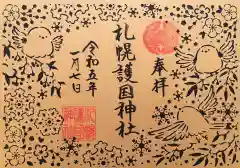 奉拝
札幌護国神社
令和五年
一月七日